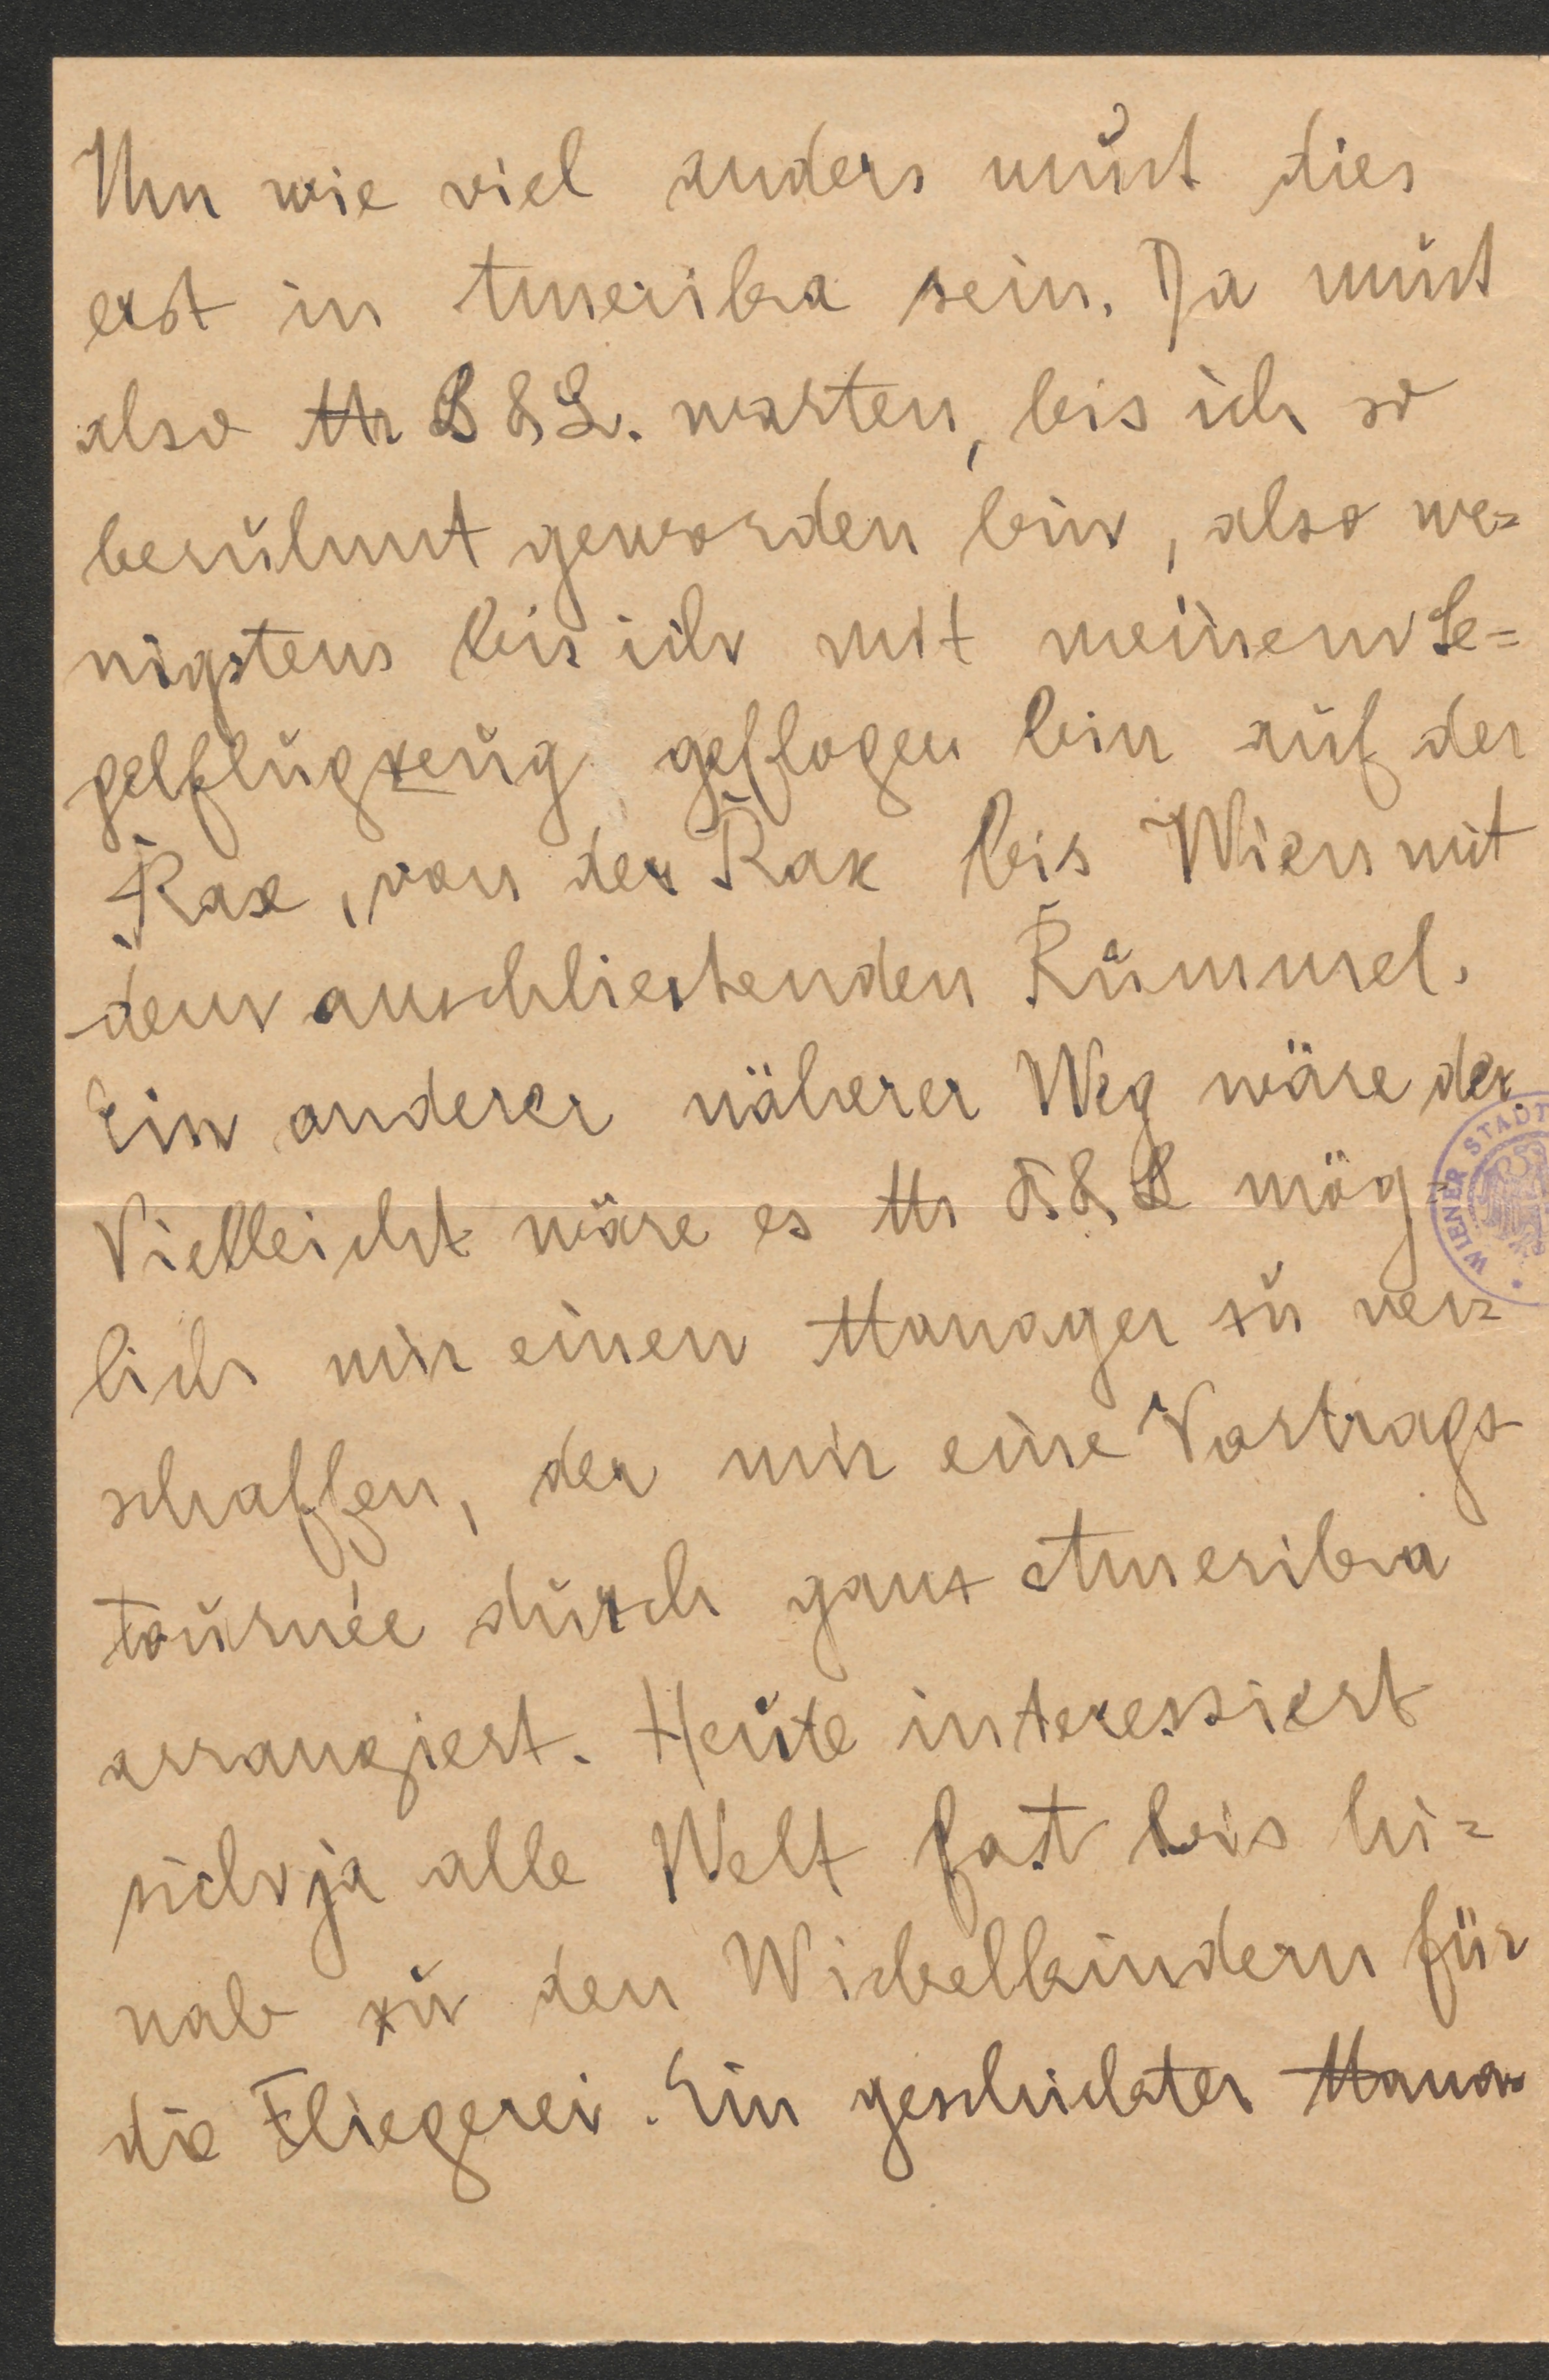 Um wie viel anders müßt dies
erst in Amerika sein. Da müßt
also Mr S & L. warten, bis ich so
berühmt geworden bin, also we=
nigstens bis ich mit meinem Se=
gelflugzeug geflogen bin auf der
Rax, von der Rax bis Wien mit
dem anschließenden Rummel.
Ein anderer näherer Weg wäre der.
Vielleicht wäre es Mr S. & L mög=
lich mir einen Manager zu ver=
schaffen, der mir eine Vortrags
tournée durch ganz Amerika
arrangiert. Heute interessiert
sich ja alle Welt fast bis hi=
nab zu den Wickelkindern für
die Fliegerei. Ein geschickter Mana
WIENER STADT